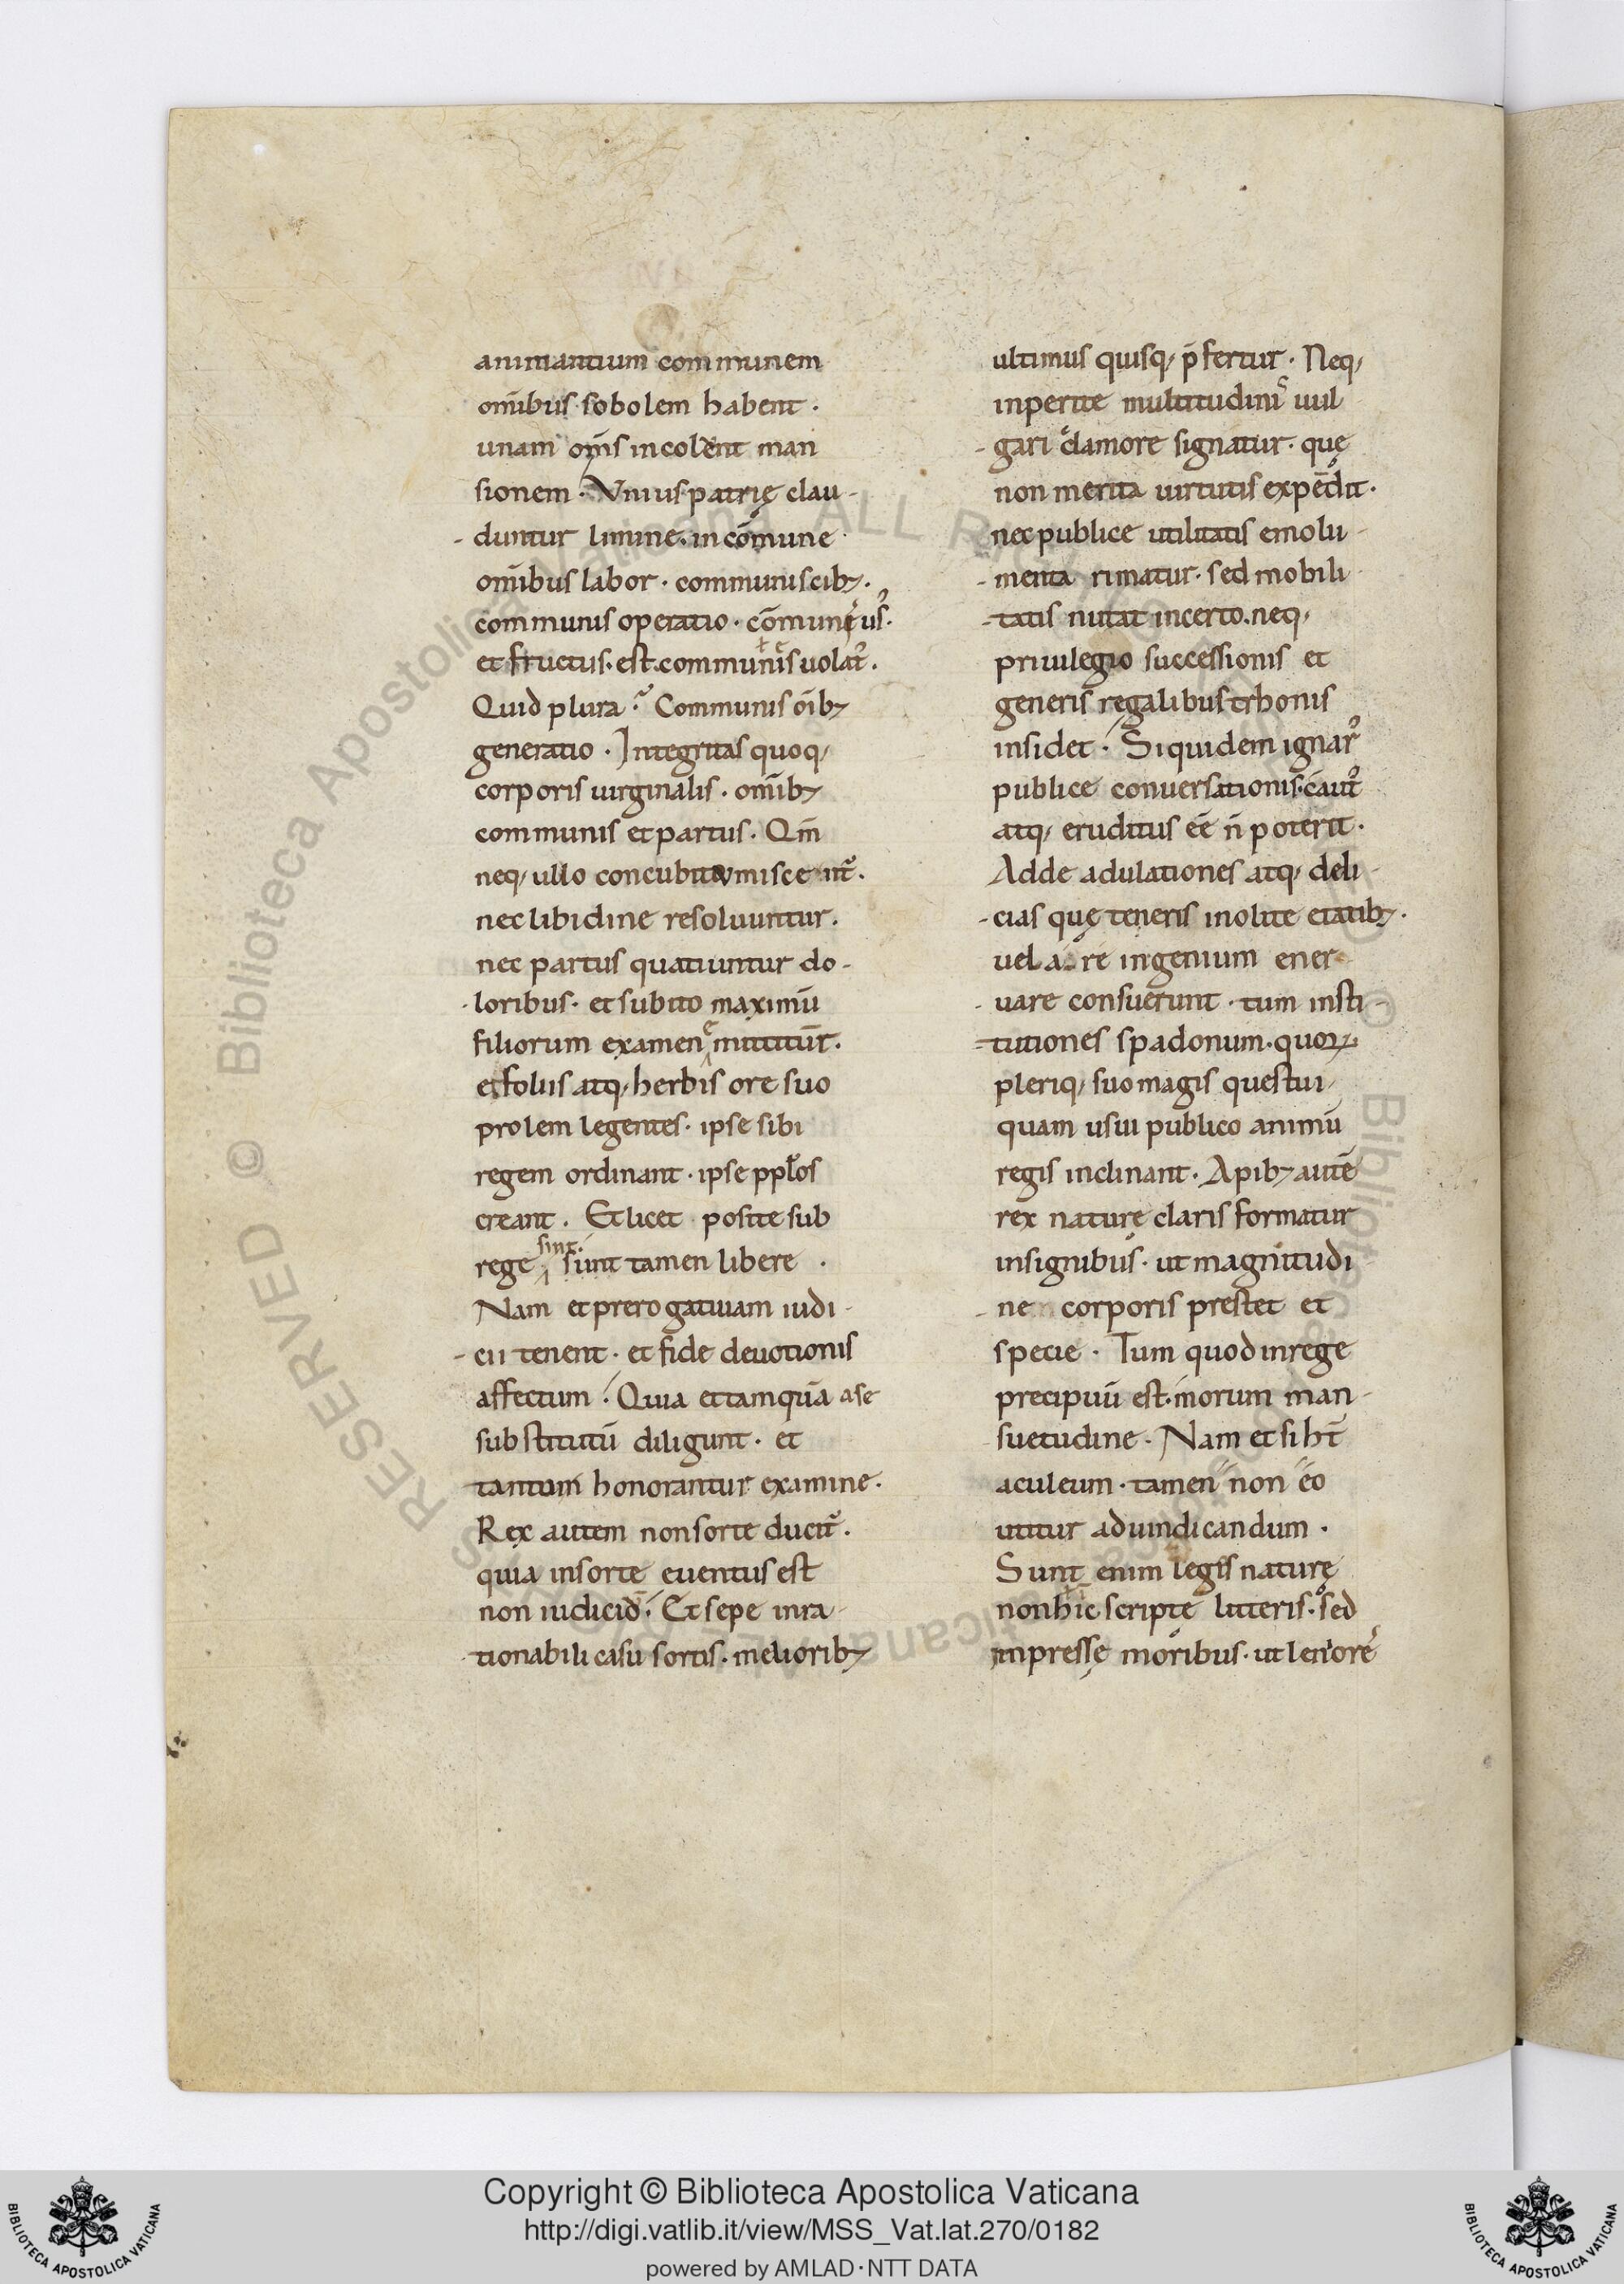 animantium communem
om̅ibus sobolem habent ·
unam om̅s incolent man
sionem · Vnius patrię clau-
duntur limine. in co̅mune
om̅ibus labor · communis cib; .
communis operatio · co̅munis us᾽.
et fructus. est communis uolat᾽.
Quid plura? Communis oi̅b;
generatio · Integritas quoq;
corporis uirginalis · omi̅b;
communis et partus. Qm̅
neq; ullo concubitu miscent᾽.
nec libidine resoluuntur.
nec partus quatiuntur do-
loribus. et subito maximu̅
filiorum examen emittitur.
e foliis atq; herbis ore suo
prolem legentes · ipse sibi
regem ordinant · ipse pplos
creant. Et licet posite sub
rege sint. sunt tamen libere .
Nam et prerogatiuam iudi-
cii tenent · et fide deuotionis
affectum. Quia et tamqua̅ a se
substitutu̅ diligunt. et
tantum honorantur examine.
Rex autem non sorte ducit᾽.
quia in sorte euentus est
non iudiciu̅. Et sepe inra-
tionabili casu sortis. meliorib;
ultimus quisq; p̅fertur. Neq;
inperite multitudinis uul
gari clamore signatur. quę
non merita uirtutis expe̅dit.
nec publice utilitatis emolu-
menta rimatur. sed mobili
tatis nutat incerto. neq;
priuilegio successionis et
generis regalibus trhonis
insidet. Siquidem ignar᾽
publice conuersationis. caut᾽
atq; eruditus ee̅ n̅ poterit.
Adde adulationes atq; deli-
cias quę teneris inolite etatib;.
uel acre ingenium ener
uare consuerunt · tum insti-
tutiones spadonum. quoꝝ
pleriq; suo magis questui
quam usui publico animu̅
regis inclinant. Apib; aute̅
rex nature claris formatur
insignibus. ut magnitudi
ne corporis prestet et
specie. Tum quod in rege
precipuu̅ est. morum man-
suetudine. Nam et si ht̅
aculeum. tamen non eo
utitur ad uindicandum .
Sunt enim legis naturę
non hic scripte litteris. sed
impressę moribus. ut leniore
Copyright © Biblioteca Apostolica Vaticana
http://digi.vatlib.it/view/MSS_Vat.lat.270/0182
powered by AMLAD·NTT DATA